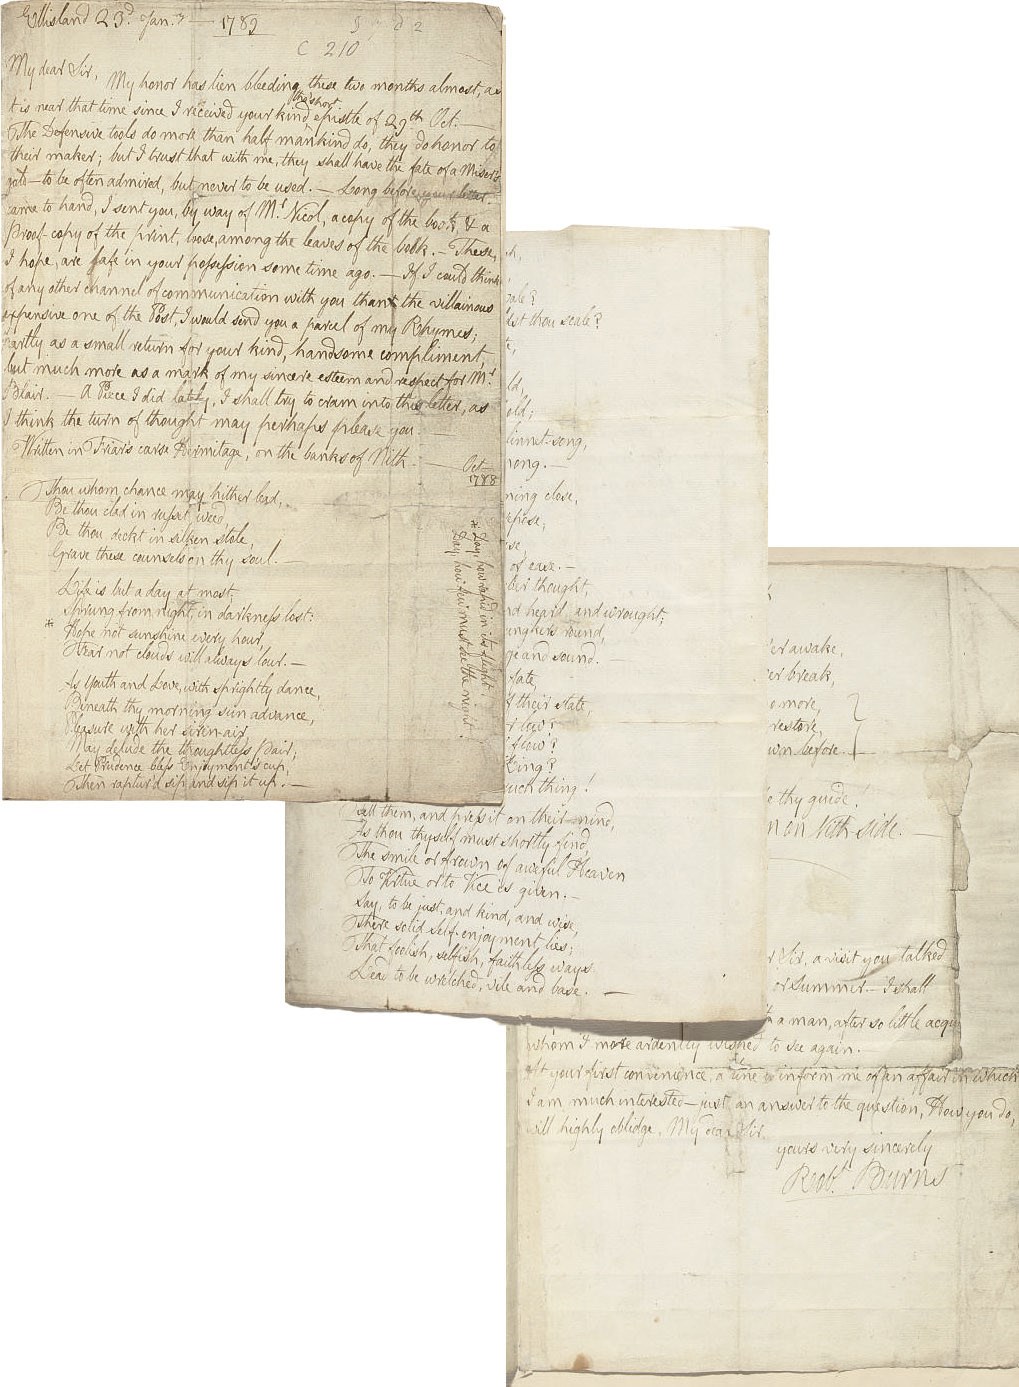 Ellisland 23.d Jan.ry — 1789
C 210
My dear Sir, My honor has lien bleeding these two months almost, as
it is near that time since I received your kind tho' short epistle of 29th Oct. —
The Defensive tools do more than half mankind do, they do honor to
their maker; but I trust that with me, they shall have the fate of a Miser's
gold — to be often admired, but never to be used. — Long before your letter
came to hand, I sent you, by way of Mr. Nicol, a copy of the book, & a
Proof-copy of the print, loose, among the leaves of the book. — These,
I hope, are safe in your possession some time ago. — If I could think
of any other channel of communication with you than the villainous
expensive one of the Post, I would send you a parcel of my Rhymes;
partly as a small return for your kind, handsome compliment,
but much more as a mark of my sincere esteem and respect for Mr.
Blair. — A Piece I did lately, I shall try to cram into this letter, as
I think the turn of thought may perhaps please you. —
Written in Friars carse Hermitage, on the banks of Nith — Oct.
1788
Thou whom chance may hither lead,
Be thou clad in russet weed,
Be thou deckt in silken stole,
Grave these counsels on thy soul. —
Life is but a day at most,
Sprung from night, in darkness lost:
* Hope not sunshine every hour,
Fear not clouds will always lour. —
* Day, how rapid in its flight
Day, how few must see the night.
As Youth and Love, with sprightly dance,
Beneath thy morning sun advance,
Pleasure with her siren-air,
May delude the thoughtless Pair;
Let Prudence bless Enjoyment's cup,
Then raptur'd sip and sip it up. —
dst thou scale?
linnet-song,
ning close,
or ease. —
thought,
nd heard, and wrought;
round,
and sound. —
their state,
such thing!
Tell them, and press it on their mind,
As thou thyself must shortly find,
The smile or frown of aweful Heaven
To Virtue or to Vice is given. —
Say, to be just, and kind, and wise,
There solid Self-enjoyment lies;
That foolish, selfish, faithless ways
Lead to be wretched, vile and base. —
er awake,
er break,
more,
restore,
before. —
thy guide!
on Nith-side. —
Sir, a visit you talked
or Summer — I shall
a man, after so little acqu
whom I more ardently wished to see again. —
At your first convenience, a line to inform me of an affair in which
I am much interested — just an answer to the question, How you do,
will highly oblidge, My dear Sir,
yours very sincerely
Robt. Burns